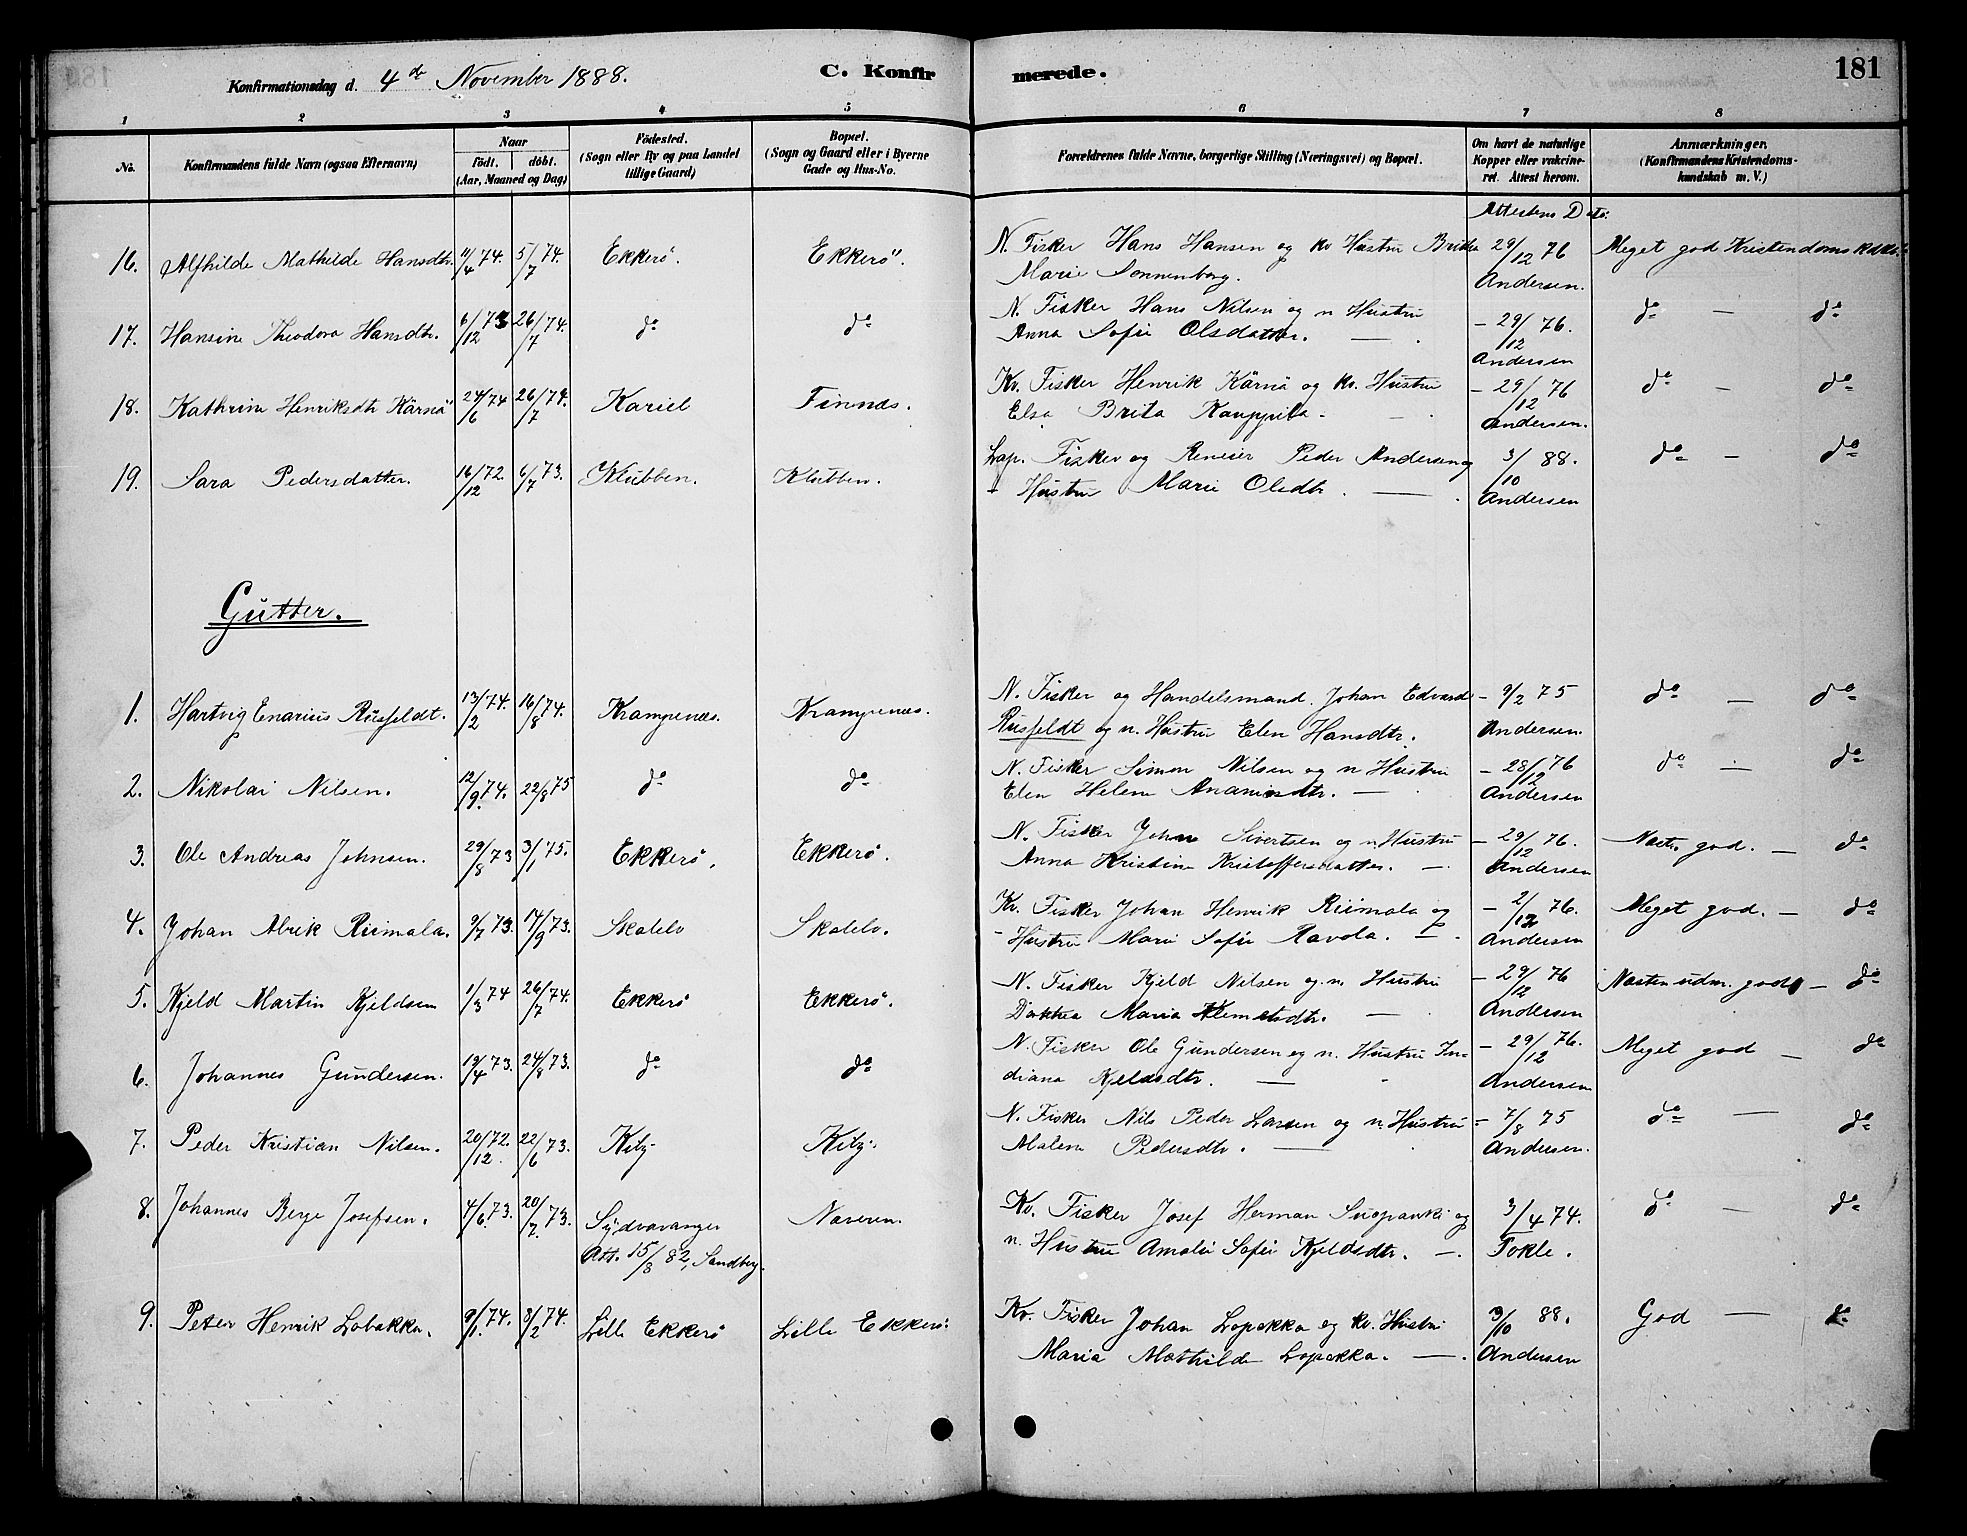 Konfirmationsdag d. 4de November 1888. C. Konfirmerede. 181
1 2 3 4 5 6 7 8
No. Konfirmandens fulde Navn (ogsaa Efternavn) Naar födt. döbt. (Aar, Maaned og Dag) Födested. (Sogn eller By og paa Landet tillige Gaard) Bopæl. (Sogn og Gaard eller i Byerne Gade og Hus-No. Forældrenes fulde Navne, borgerlige Stilling (Næringsvei) og Bopæl. Om havt de naturlige Kopper eller vakcineret. Attest herom. Anmærkninger. (Konfirmandens Kristendomskundskab m. V.)
Attestens Dato:
16. Alfhilde Mathilde Hansdtr. 11/4 74. 5/7 74. Ekkerö. Ekkerö. N. Fisker Hans Hansen og kv Hustru Brita 29/12 76 Meget god Kristendomskdsk.
Marie Sonnenborg. Andersen.
17. Hansine Theodora Hansdtr. 6/12 73 26/7 74. do do N. Fisker Hans Nilsen og n Hustru - 29/12 76. do - do
Anna Sofie Olsdatter. — Andersen
18. Kathrine Henriksdtr Kärnä 24/6 74 26/7 74. Kariel Finnæs. Kv. Fisker Henrik Kärnä og kv. Hustru - 29/12 76 do - do
Elsa Brita Kauppila - Andersen.
19. Sara Pedersdatter. 16/12 72. 6/7 73. Klubben. Klubben. Lap. Fisker og Reneier Peder Andersen og 3/10 88. do - do
- Hustru Marie Olsdtr. — Andersen
Gutter.
1. Hartvig Enarius Rusfeldt. 13/2 74. 16/8 74. Krampenæs. Krampenæs. N. Fisker og Handelsmand Johan Edvard - 9/2 75 do — do
Rusfeldt og n. Hustru Elen Hansdtr. Andersen
2. Nikolai Nilsen. 12/9 74. 22/8 75 do do N. Fisker Simon Nilsen og n Hustru - 28/12 76 do - do
Elen Helene Ananiasdtr. — Andersen
3. Ole Andreas Johnsen. 29/8 73 3/1 75. Ekkerö. Ekkerö. N. Fisker John Sivertsen og n Hustru - 29/12 76. Næsten god. — do
Anna Kristine Kristoffersdatter. — Andersen
4. Johan Abrik Riimala. 9/7 73. 14/9 73. Skalelv Skalelv. Kv. Fisker Johan Henrik Riimala og - 2/12 76. Meget god. — do
- Hustru Marie Sofie Ravola. — Andersen
5. Kjeld Martin Kjeldsen 1/3 74 26/7 74. Ekkerö Ekkerö. N. Fisker Kjeld Nilsen og n. Hustru - 29/12 76 Næsten udm. god — do
Maria Klemetsdtr. — Andersen
6. Johannes Gundersen. 19/4 73. 24/8 73. do do N. Fisker Ole Gundersen og n. Hustru In- - 29/12 76. Meget god — do
diana Kjeldsdtr. — Andersen
7. Peder Kristian Nilsen. 20/12 72. 22/6 73. Kiby Kiby. N. Fisker Nils Peder Larsen og n. Hustru - 7/8 75 do — do
Malene Pedersdtr. — Andersen.
8. Johannes Berge Josefsen. 4/6 73. 20/7 73. Sydvaranger Naveren. Kv. Fisker Josef Herman Suopanki og 3/4 74. do — do
Att. 15/8 82, Sandberg. n. Hustru Amalie Sofie Kjeldsdtr. — Tokle.
9. Peter Henrik Lobakka. 9/1 74. 8/2 74. Lille Ekkerö Lille Ekkerö. Kv. Fisker Johan Lopakka og kv. Hustru 3/10 88. God —
Maria Mathilde Lopakka. — Andersen